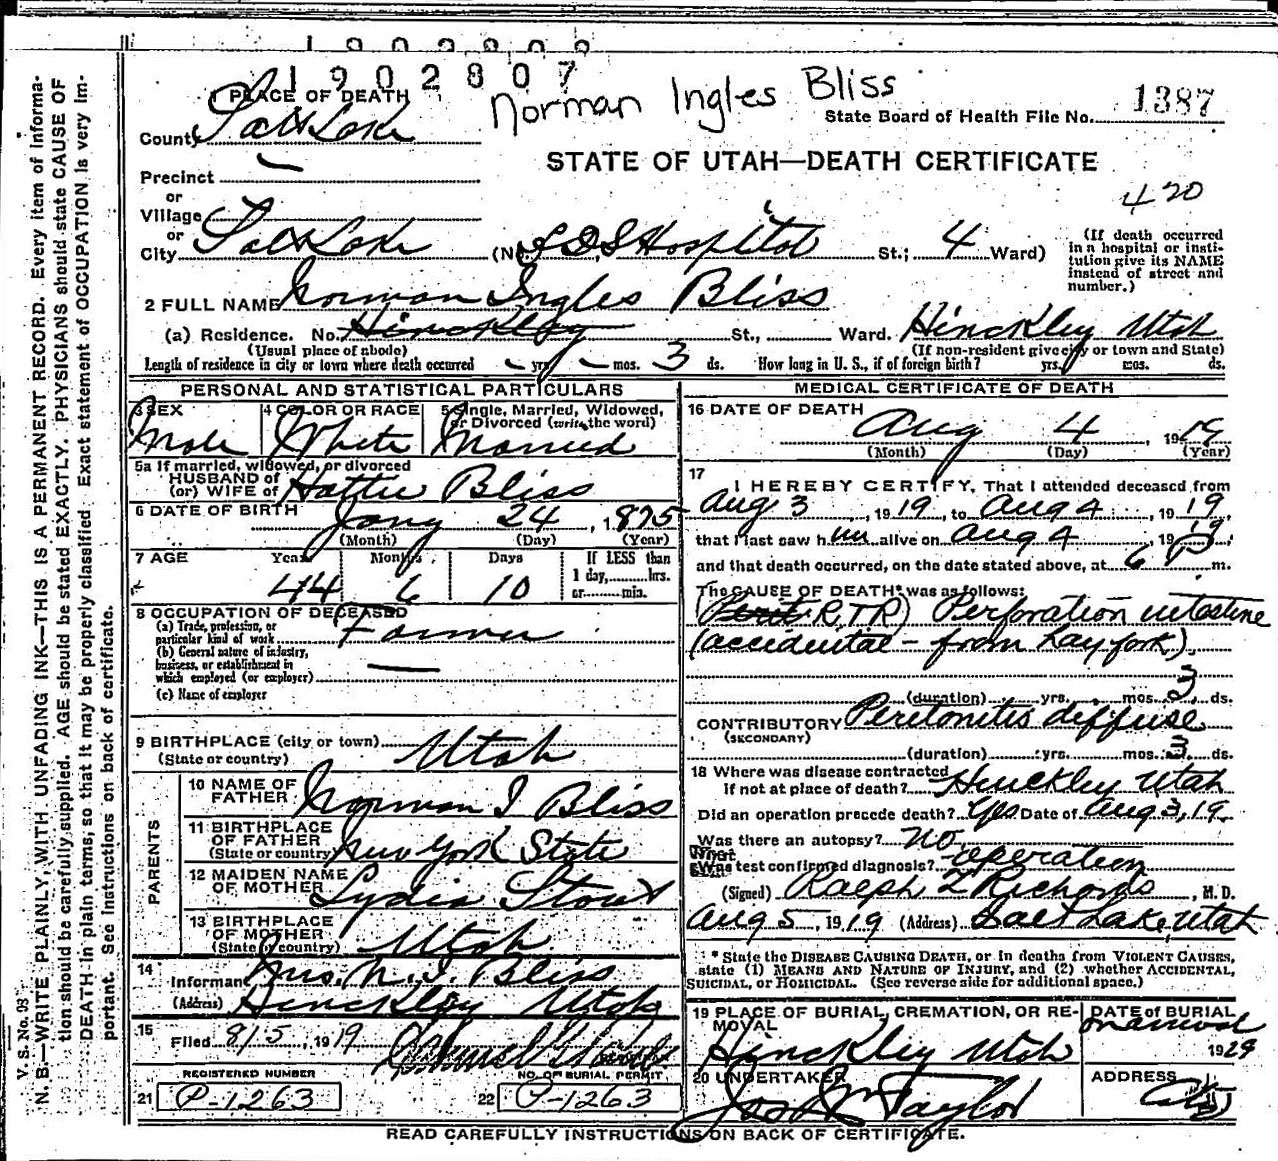 1902807
Norman Ingles Bliss
1 PLACE OF DEATH
State Board of Health File No. 1387
County Salt Lake
STATE OF UTAH—DEATH CERTIFICATE
Precinct —
or
Village
420
or
City Salt Lake (No. LDS Hospital St.; 4 Ward)
(If death occurred in a hospital or institution give its NAME instead of street and number.)
2 FULL NAME Norman Ingles Bliss
(a) Residence. No. Hinckley St., Ward. Hinckley Utah
(Usual place of abode) (If non-resident give city or town and State)
Length of residence in city or town where death occurred — yrs. — mos. 3 ds. How long in U. S., if of foreign birth? yrs. mos. ds.
PERSONAL AND STATISTICAL PARTICULARS
3 SEX 4 COLOR OR RACE 5 Single, Married, Widowed, or Divorced (write the word)
Male White Married
5a If married, widowed, or divorced
HUSBAND of
(or) WIFE of Hattie Bliss
6 DATE OF BIRTH Jany 24, 1875
(Month) (Day) (Year)
7 AGE Years Months Days If LESS than
1 day, hrs.
44 6 10 or min.
8 OCCUPATION OF DECEASED
(a) Trade, profession, or
particular kind of work Farmer
(b) General nature of industry,
business, or establishment in
which employed (or employer) —
(c) Name of employer
9 BIRTHPLACE (city or town)
(State or country) Utah
PARENTS
10 NAME OF
FATHER Norman I Bliss
11 BIRTHPLACE
OF FATHER
(State or country) New York State
12 MAIDEN NAME
OF MOTHER Lydia Stout
13 BIRTHPLACE
OF MOTHER
(State or country) Utah
14
Informant Mrs. N. I. Bliss
(Address) Hinckley Utah
15
Filed 8/5, 1919
REGISTERED NUMBER NO. OF BURIAL PERMIT
21 P-1263 22 P-1263
MEDICAL CERTIFICATE OF DEATH
16 DATE OF DEATH Aug 4, 1919
(Month) (Day) (Year)
17
I HEREBY CERTIFY, That I attended deceased from
Aug 3, 1919, to Aug 4, 1919,
that I last saw him alive on Aug 4, 1919,
and that death occurred, on the date stated above, at 6 P m.
The CAUSE OF DEATH* was as follows:
R.T.R) Perforation intestine
(accidental – from hay fork)
(duration) yrs. mos. 3 ds.
CONTRIBUTORY Peritonitis diffuse
(SECONDARY)
(duration) yrs. mos. 3 ds.
18 Where was disease contracted
if not at place of death? Hinckley Utah
Did an operation precede death? Yes Date of Aug 3, 19
Was there an autopsy? No
What test confirmed diagnosis? operation
(Signed) Ralph T Richards, M. D.
Aug 5, 1919 (Address) Salt Lake, Utah
* State the DISEASE CAUSING DEATH, or in deaths from VIOLENT CAUSES,
state (1) MEANS AND NATURE OF INJURY, and (2) whether ACCIDENTAL,
SUICIDAL, or HOMICIDAL. (See reverse side for additional space.)
19 PLACE OF BURIAL, CREMATION, OR RE-
MOVAL
DATE of BURIAL
Hinckley Utah
1929
20 UNDERTAKER ADDRESS
Jos Wm Taylor City
READ CAREFULLY INSTRUCTIONS ON BACK OF CERTIFICATE.
V. S. No. 98
N. B.—WRITE PLAINLY, WITH UNFADING INK—THIS IS A PERMANENT RECORD. Every item of informa-
tion should be carefully supplied. AGE should be stated EXACTLY. PHYSICIANS should state CAUSE OF
DEATH in plain terms, so that it may be properly classified. Exact statement of OCCUPATION is very im-
portant. See instructions on back of certificate.